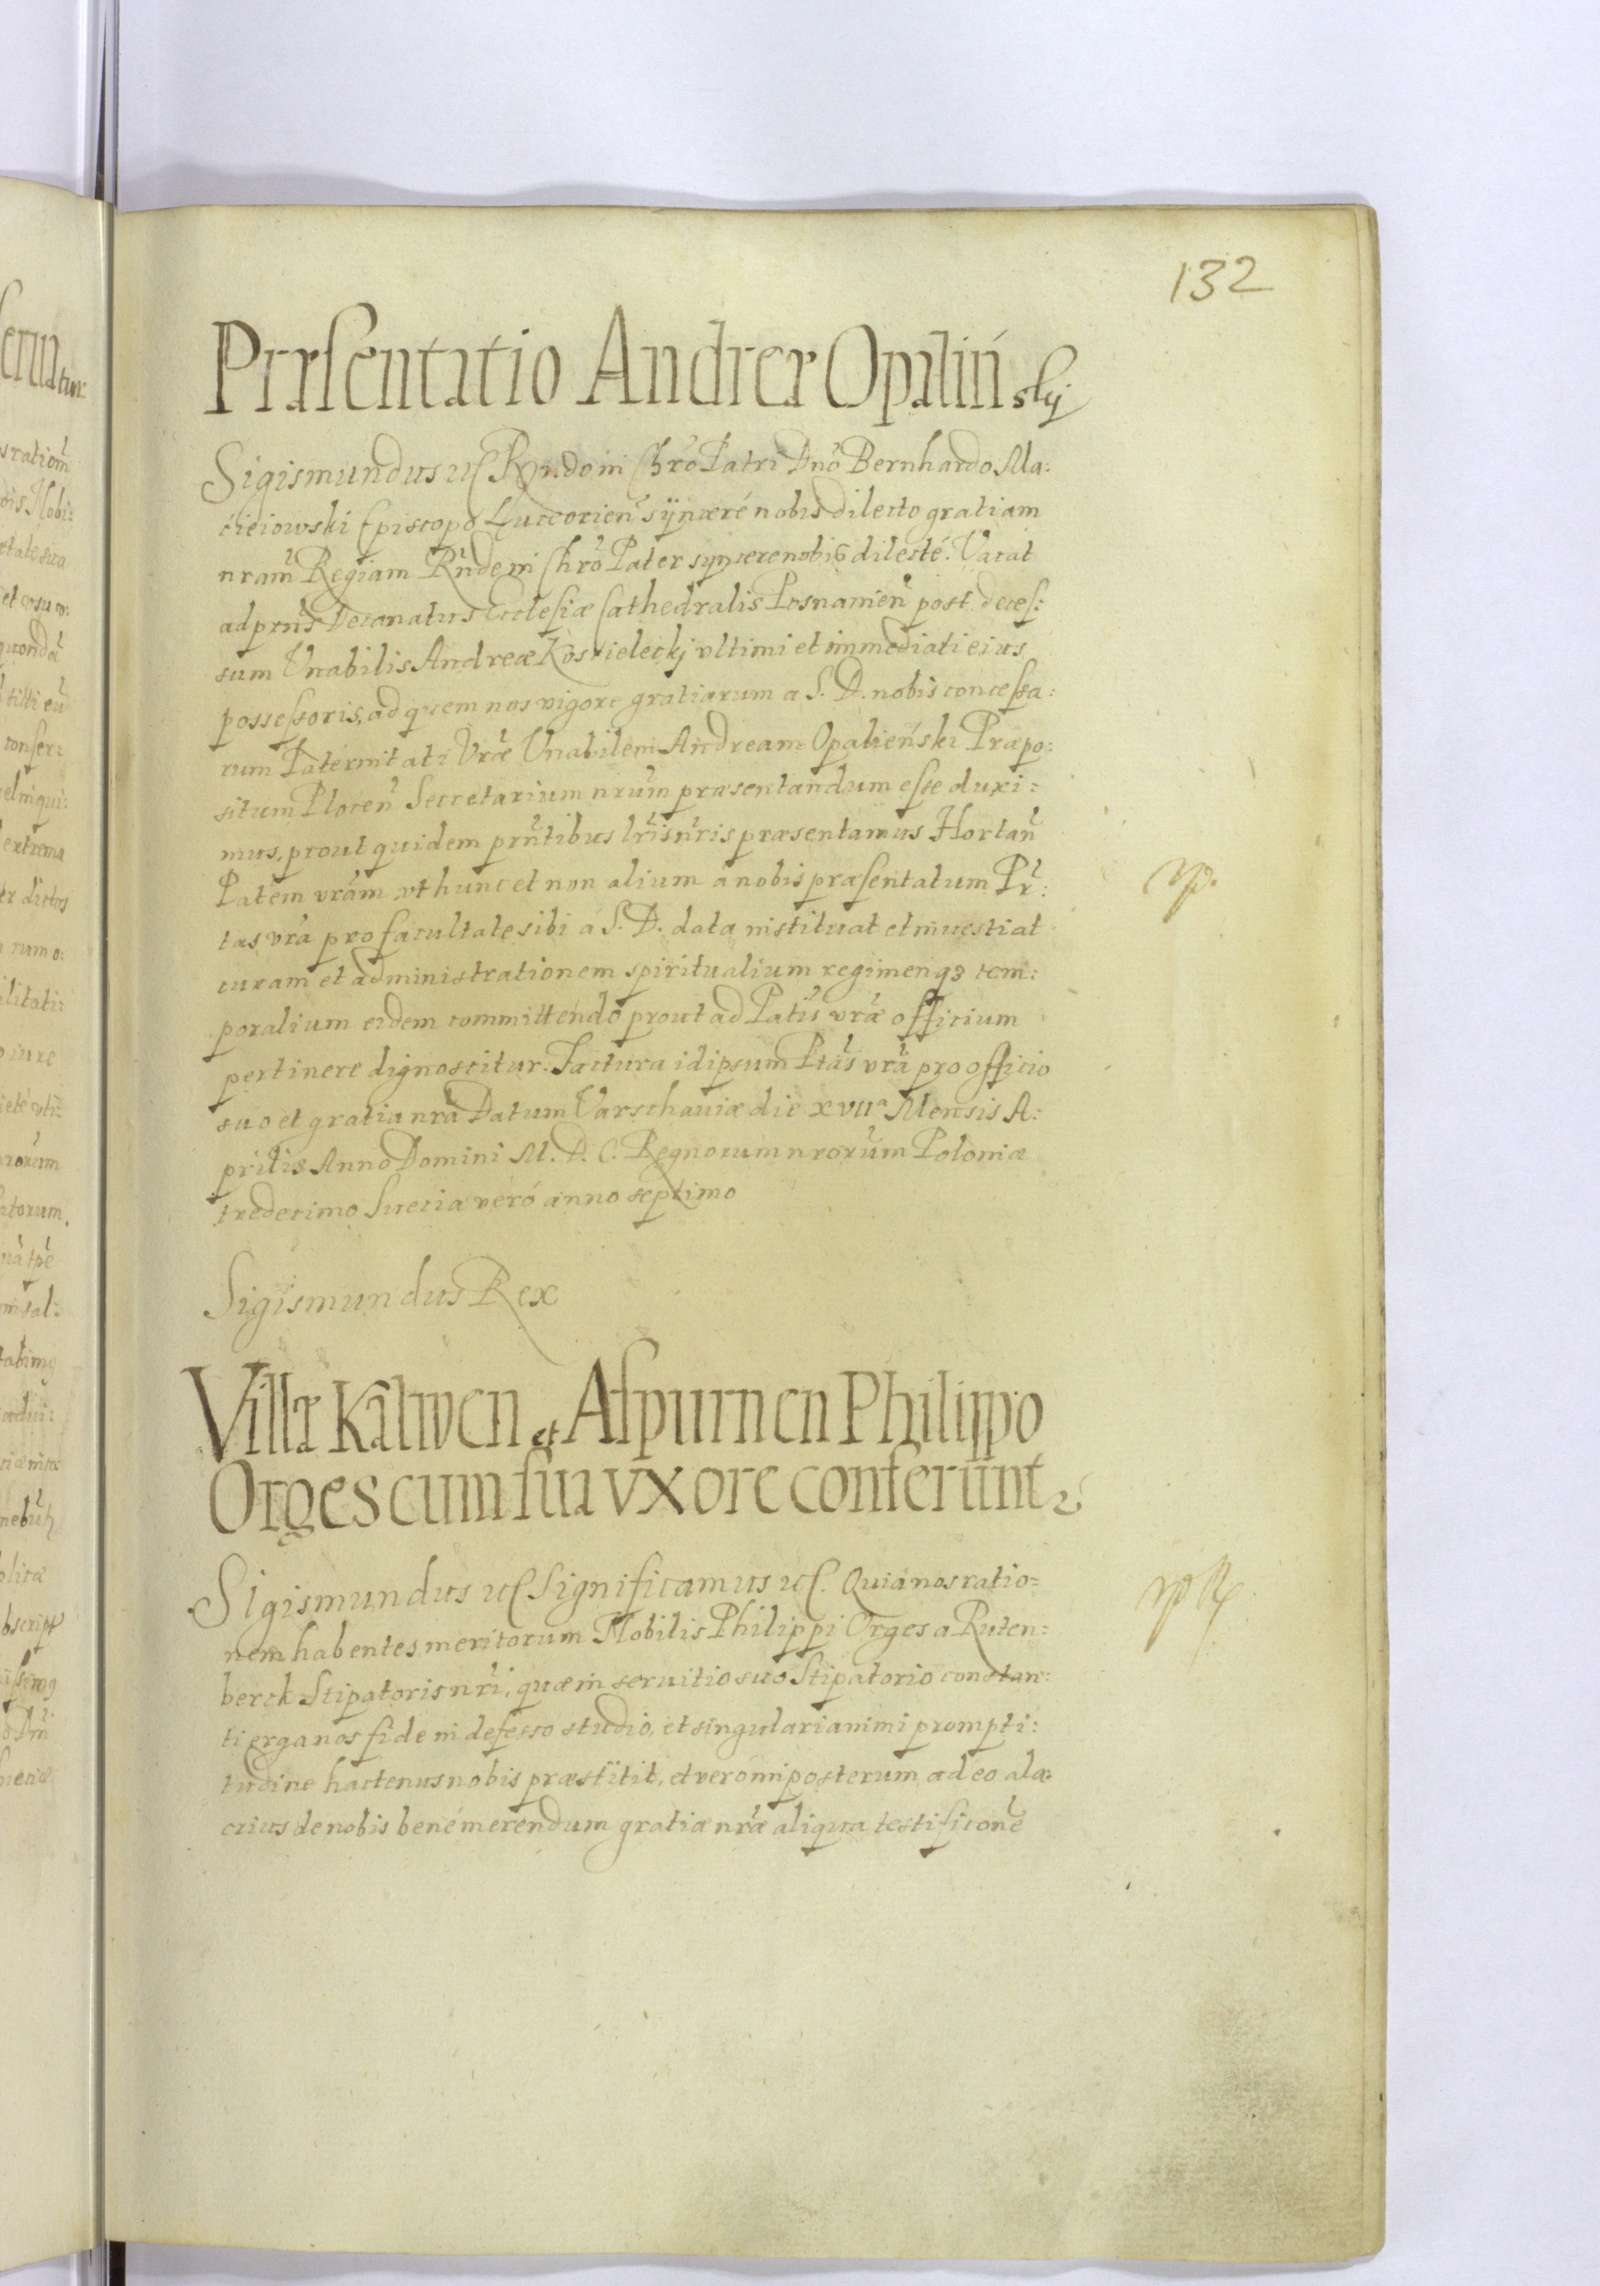 132
Præsentatio Andreæ Opalińskij
Sigismundus etc Rndo in Chrō Patri Dnō Bernhardo Ma:
ćieiowski Episcopo Luceorien̄ sÿnceré nobis dilecto gratiam
nram̄ Regiam Rn̄de in Chrō Pater syncere nobis dilecté. Vacat
ad prn̄s Decanatus Ecclesiæ Cathedralis Posnanien̄ post deces:
sum Vnabilis Andreæ Koscielecki vltimi et immediati eius
possessoris, ad quem nos vigore gratiarum a S. D. nobis concessa:
rum Paternitati Vræ Vnabilem Andream Opalieński Præpo:
situm Plocen̄ Secretarium nrum̄ præsentandum esse duxi:
mus, prout quidem prn̄tibus lris̄ nris̄ præsentamus Hortan̄
Patem vram̄, vt hunc et non alium a nobis præsentatum Pr̄:
tas vrā pro facultate sibi a S. D. data instituat et inuestiat
curam et administrationem spiritualium regimenqȝ tem:
poralium eidem committendo prout ad Patis̄ vrǣ officium
pertinere dignoscitur. Factura idipsum Ptas̄ vrā pro officio
suo et gratia nrā Datum Varschauiæ die XVIIa Mensis A:
prilis Anno Domini M. D. C. Regnorum nrorum̄ Poloniæ
tredecimo Sueciæ veró anno septimo
Sigismundus Rex
Villæ Kalwen et Aspurnen Philippo
Orges cum sua vxore conferunt
Sigismundus etc Significamus etc. Quia nos ratio=
nem habentes meritorum Nobilis Philippi Orges a Ruten:
berck Stipatoris nrī, quæ in seruitio suo Stipatorio constan:
ti erga nos fide indefesso studio, et singulari animi prompti:
tudine hactenus nobis præstitit, et veró in posterum ad eo ala:
crius de nobis bené merendum gratiæ nrǣ aliqua testificonē